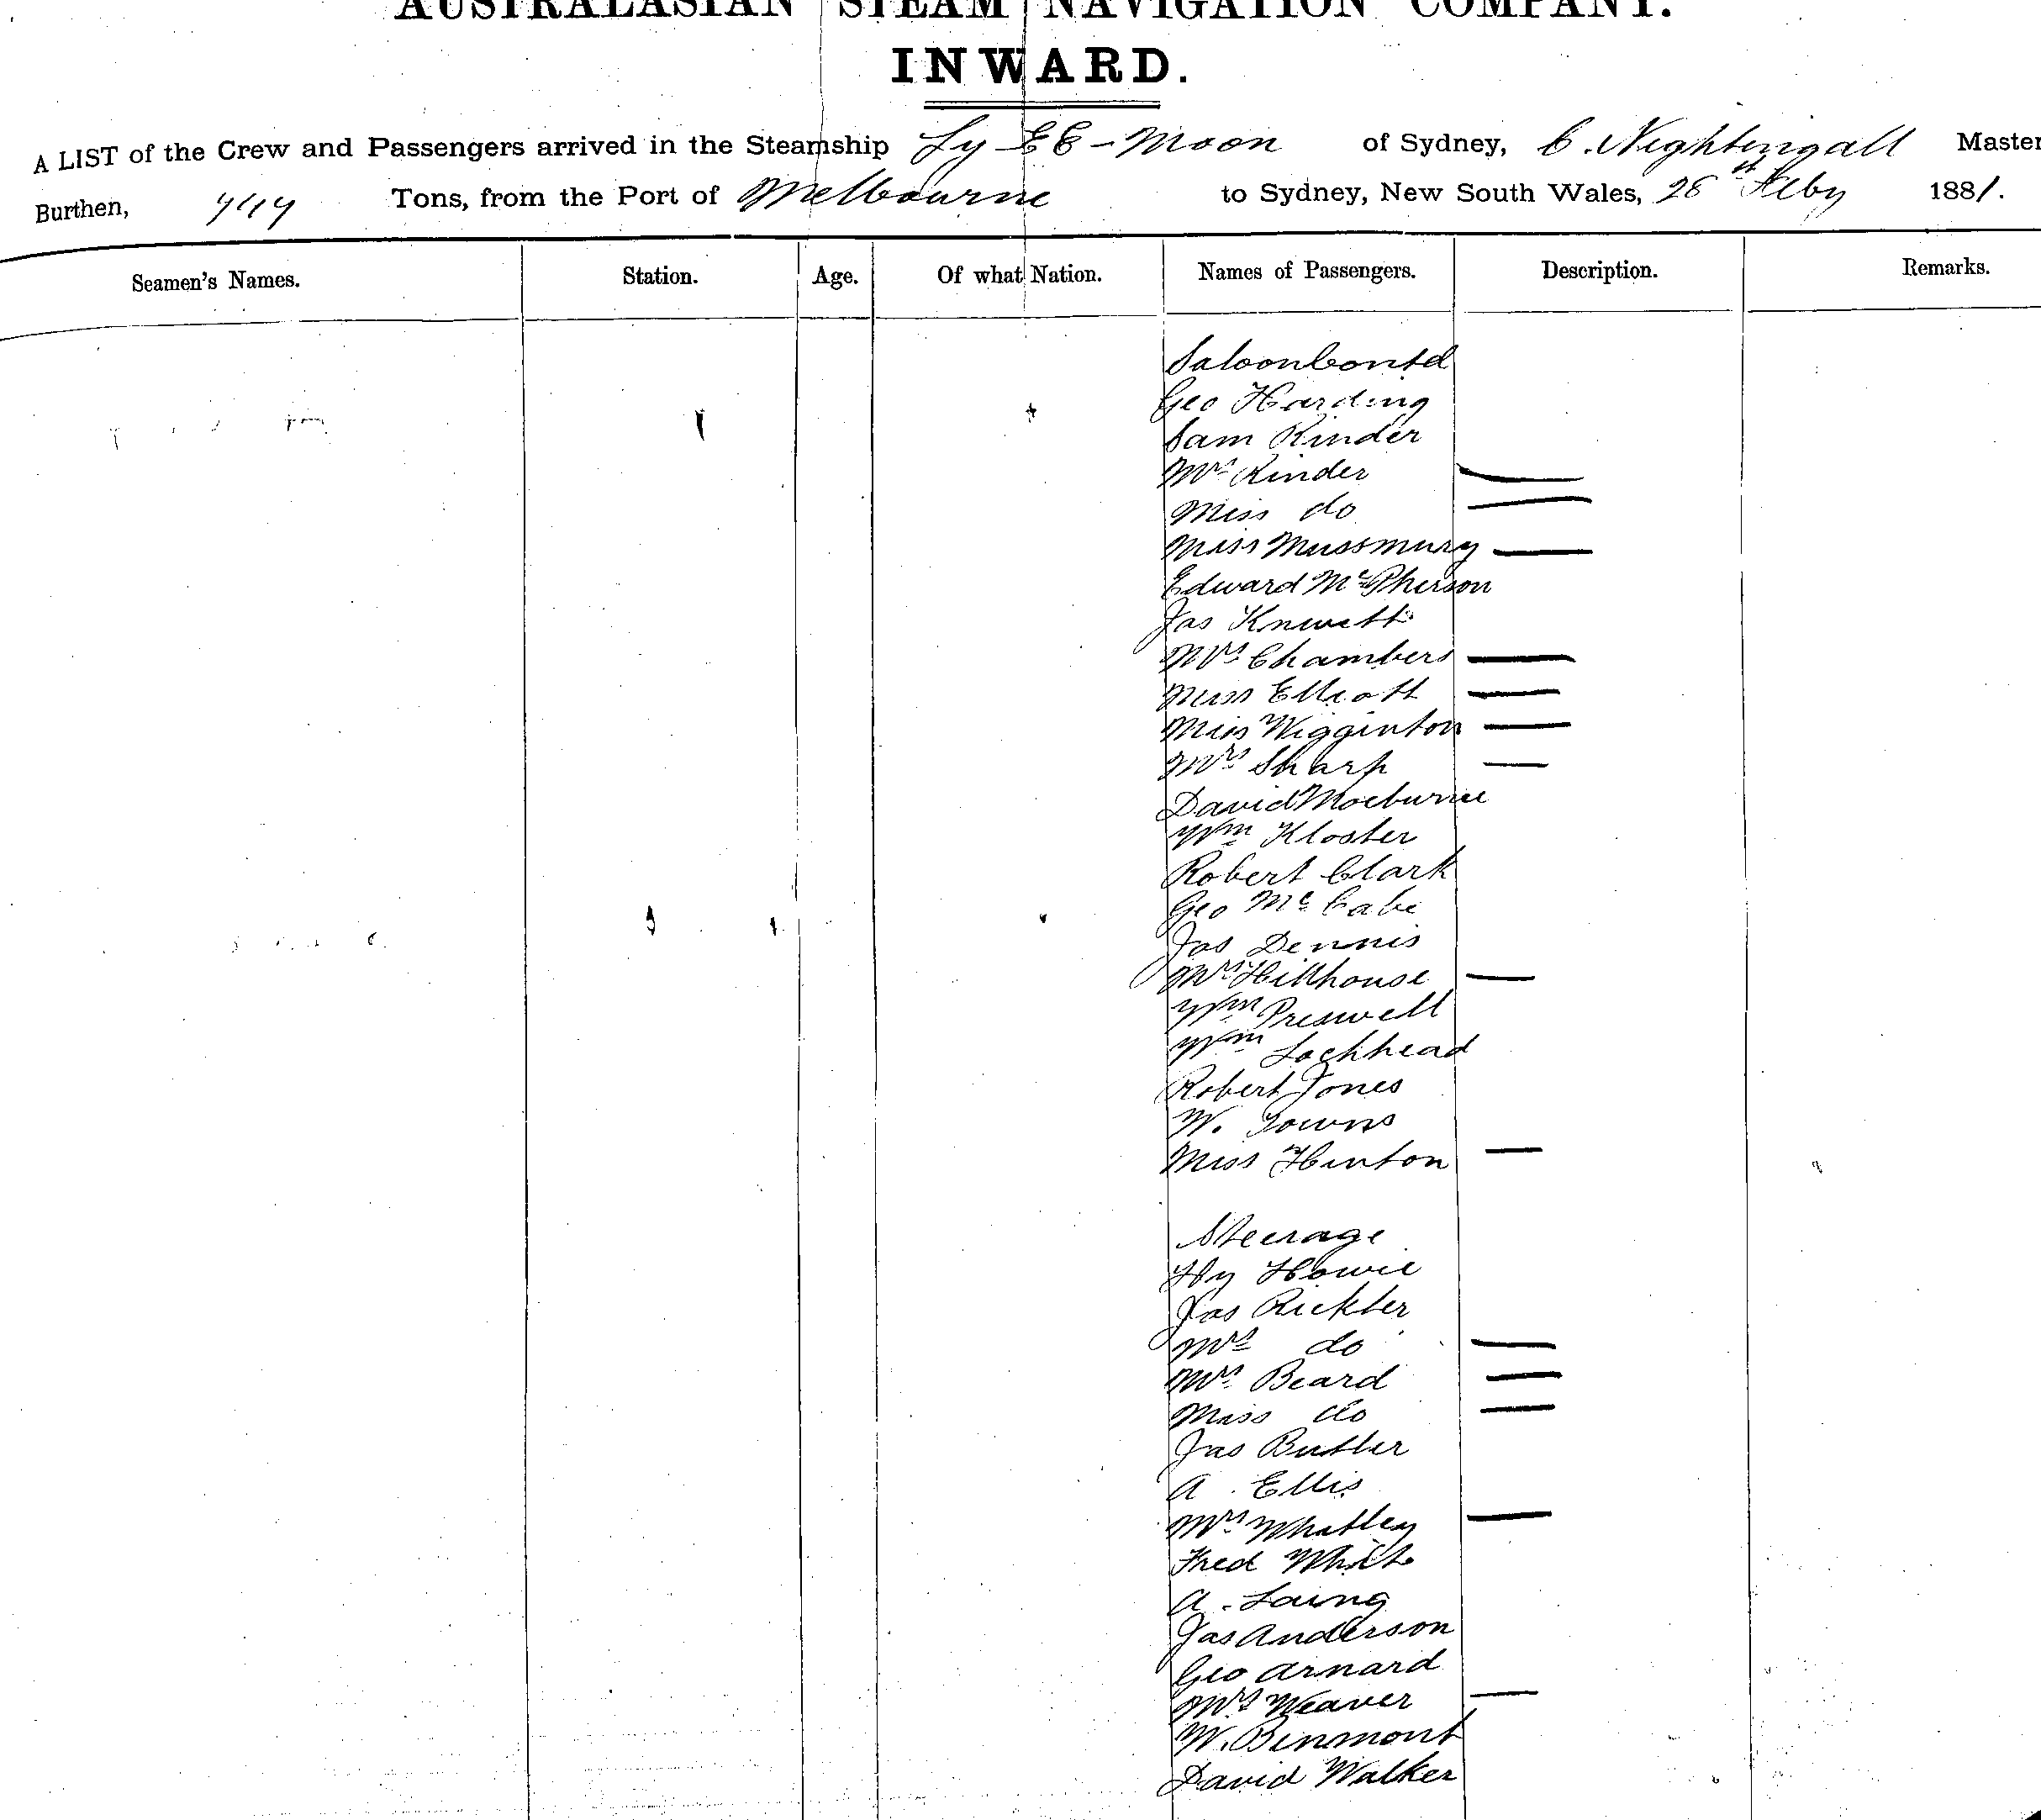 AUSTRALASIAN STEAM NAVIGATION COMPANY.
INWARD.
A LIST of the Crew and Passengers arrived in the Steamship Ly-EE-Moon of Sydney, C. Nightingall Master
Burthen, Tons, from the Port of Melbourne to Sydney, New South Wales, 28th Feby 1881.
Seamen's Names. Station. Age. Of what Nation. Names of Passengers. Description. Remarks.
Saloon Contd
Geo Harding
Sam Kinder
Mrs Kinder
Miss do
Miss
Edward McPherson
Jas
Mrs Chambers
Miss Elliott
Miss Wigginton
Mrs Sharp
David
Wm Kloster
Robert Clark
Geo McCabe
Jas Dennis
Mrs Hillhouse
Wm Preswell
Wm Lochhead
Robert Jones
W. Towns
Miss Hinton
Steerage
Hy Howie
Jas Rickter
Mrs do
Mrs Beard
Miss do
Jas Butler
A. Ellis
Mrs Whatley
Fred White
A. Laing
Jas Anderson
Geo Arnard
Mrs Weaver
W. Binmont
David Walker